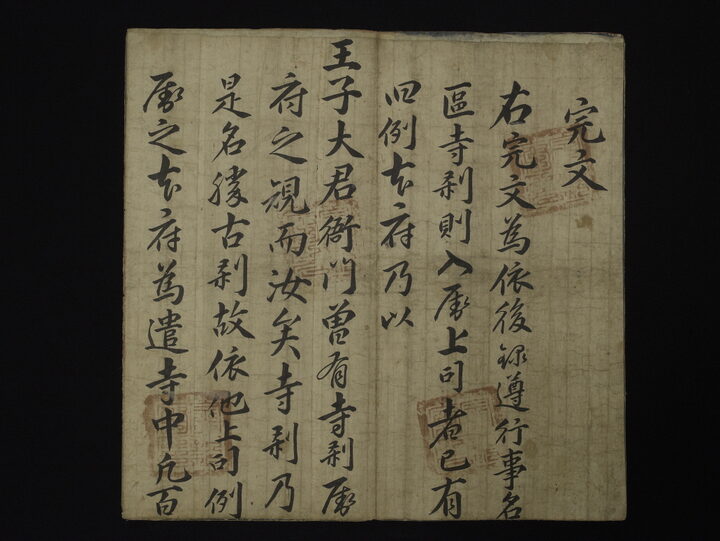 完文
右完文為依後錄遵行事名
區寺刹則入属上司者已有
旧例本府乃以
王子大君衙門曾有寺刹属
府之規而汝矣寺刹乃
是名勝古刹故依他上司例
属之本府為遣寺中凡百